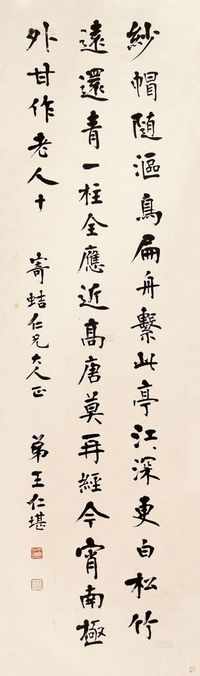 紗帽隨漚鳥扁舟繫此亭江深更白松竹
遠還青一柱全應近高唐莫再經今宵南極
外甘作老人十
寄蛣仁兄大人正
弟王仁堪